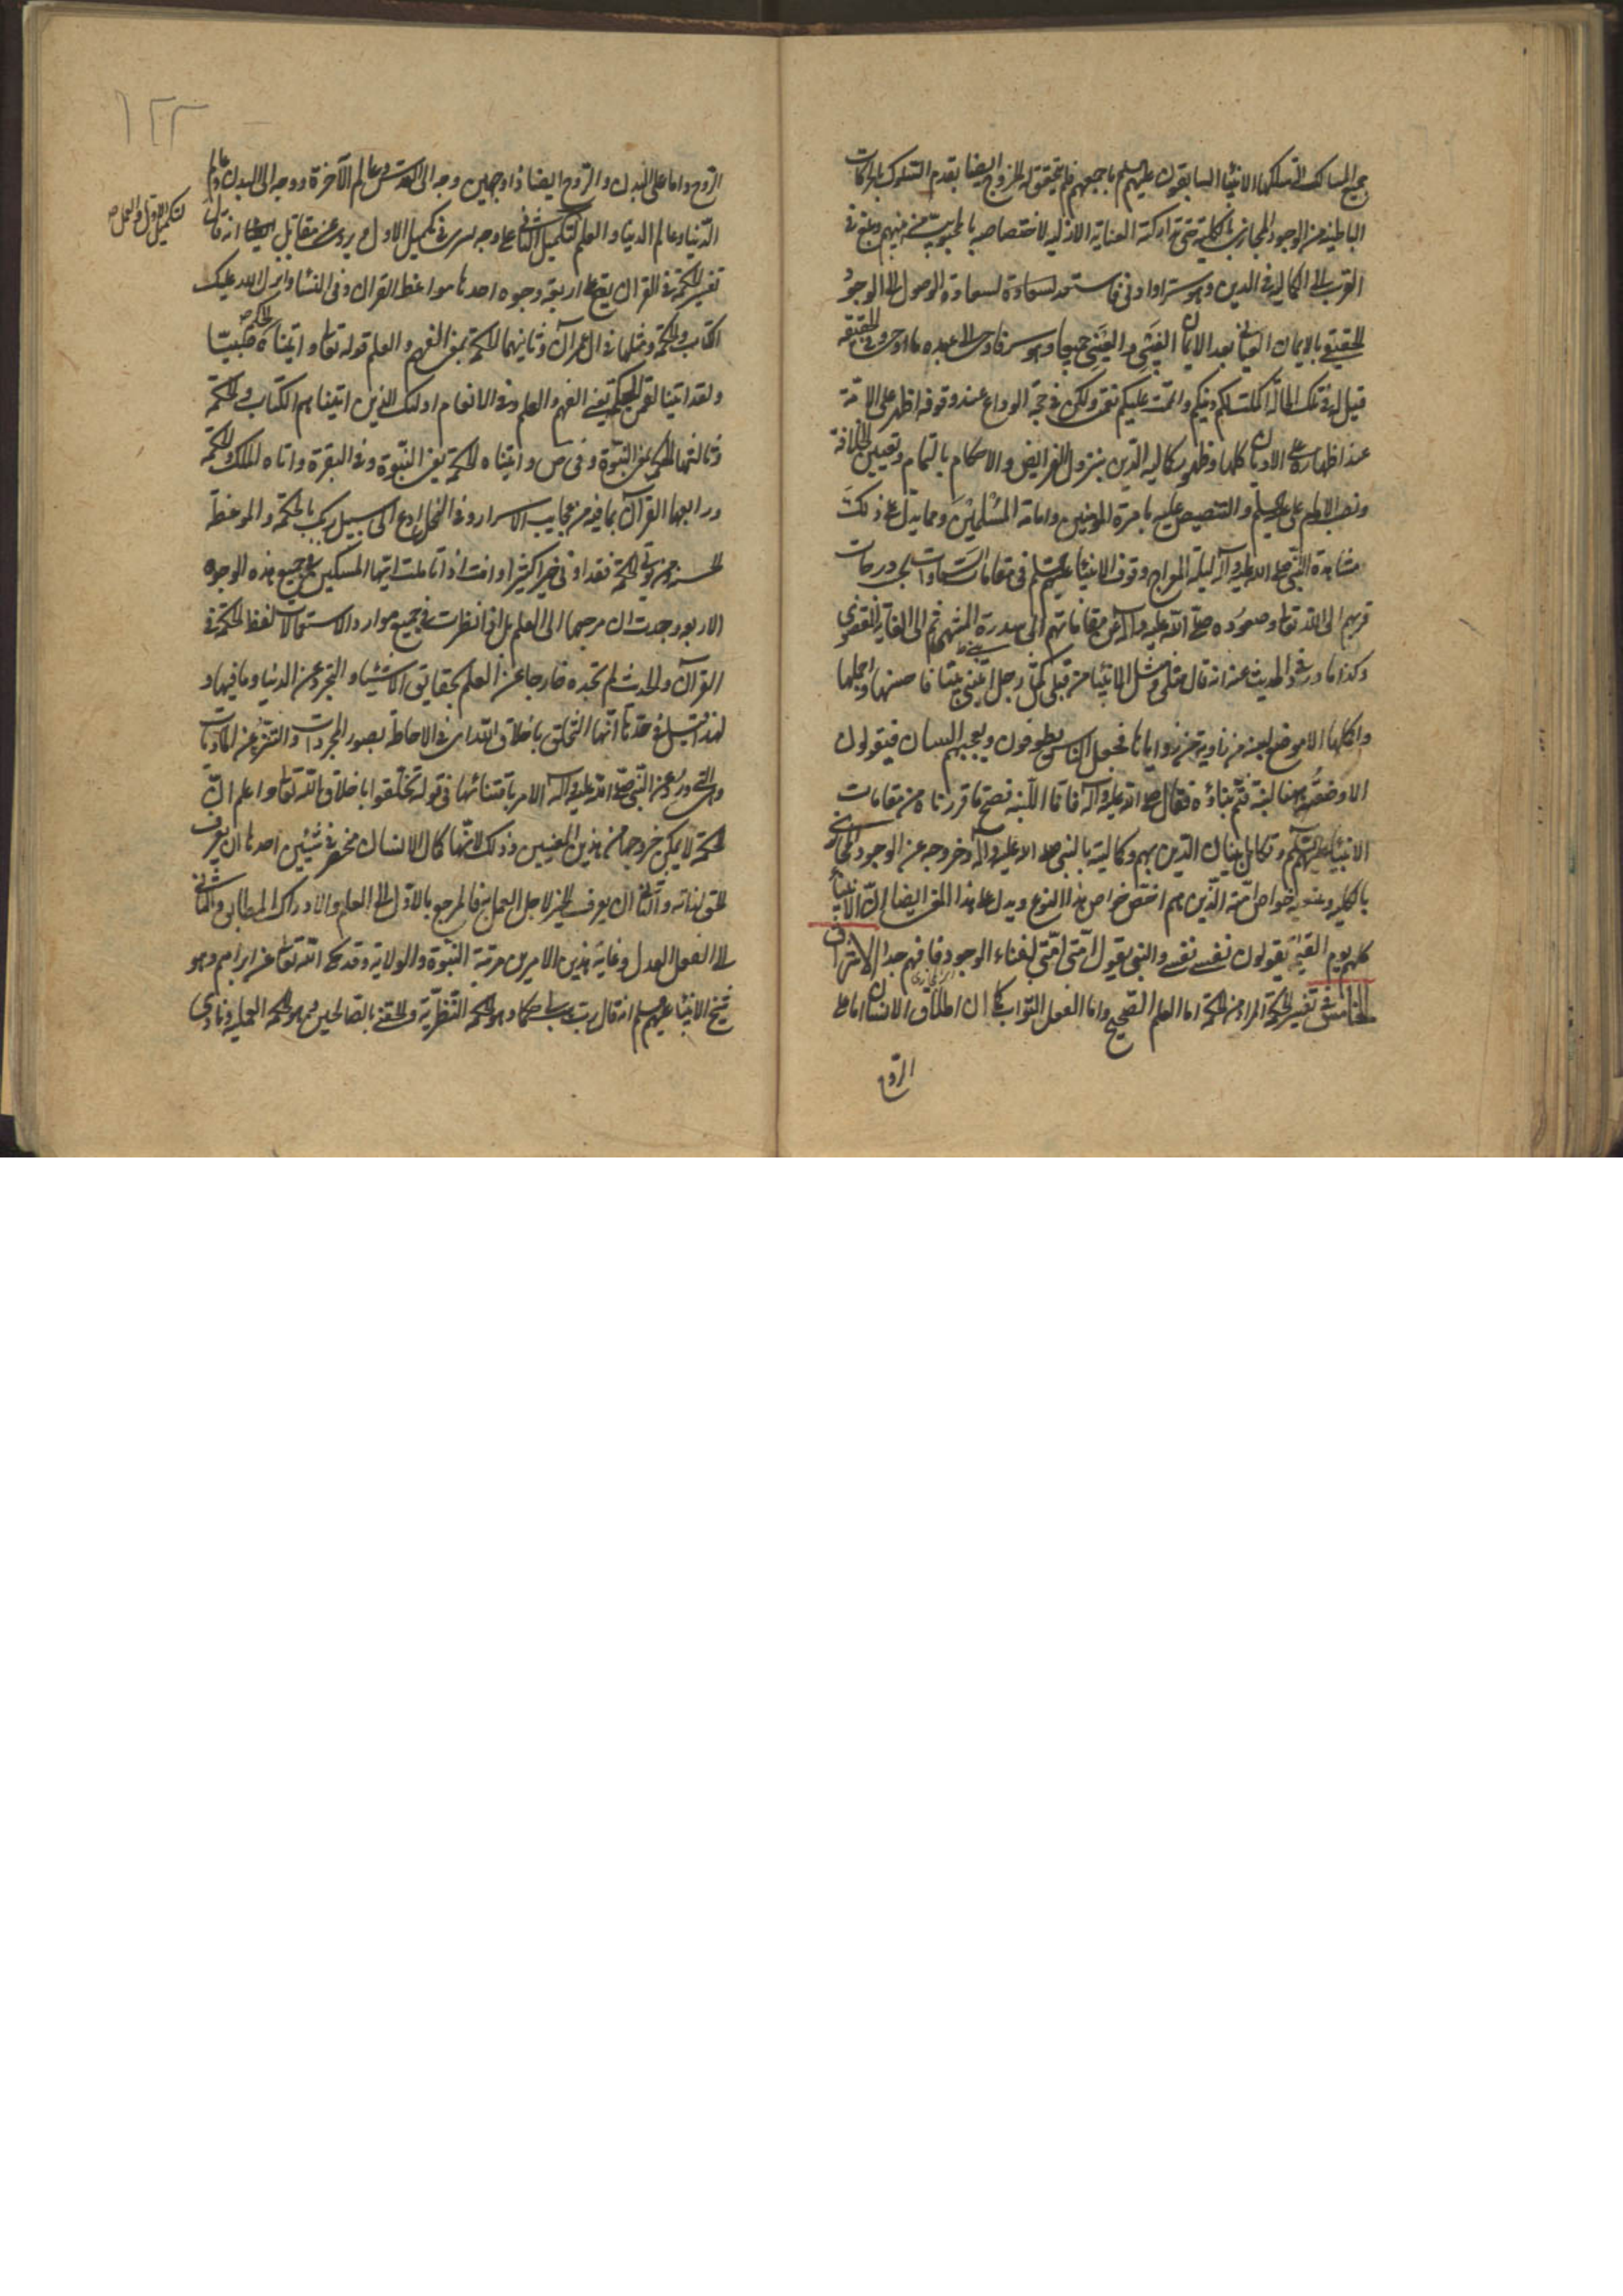 جميع المسالك التي سلكها الانبياء السابقون عليهم السلم باجمعهم فلم يتحقق له الخروج ايضا بقدم السلوك بالحركات
الباطنية من الوجود المجازي بالكلية حتى تداركته العناية الازلية لاختصاصه بالمحبوبية من بينهم وبلغ في
القرب الى الكمالية في الدين وهو سر او ادنى فاستعد لسعادة الوصول الى الوجود
الحقيقي بالايمان العياني بعد الايمان الغيبي والعيني جميعا وهو سر فاوحى الى عبده ما اوحى وفي الحقيقة
قيل له في تلك الحالة اكملت لكم دينكم واتممت عليكم نعمتي ولكن في حجة الوداع عند وقوفه اظهر على الامة
عند اظهاره على الاديان كلها وظهور كمالية الدين بنزول الفرايض والاحكام بالتمام وتعيين الخلافة
ونصب الامام علي عليه السلم والتنصيص عليه بامرة المؤمنين وامامة المسلمين ومما يدل على ذلك
مشاهدة النبي صلى الله عليه وآله ليلة المعراج وقوف الانبياء عليهم السلم في مقامات السموات بحسب درجات
قربهم الى الله تعالى وصعوده صلى الله عليه وآله عن مقاماتهم الى سدرة المنتهى ثم الى الغاية القصوى
وكذا ما ورد في الحديث عنه انه قال مثلي ومثل الانبياء من قبلي كمثل رجل ابتنى بيتا فاحسنها واجملها
واكملها الا موضع لبنة من زاوية من زواياها فجعل الناس يطوفون ويعجبهم البنيان فيقولون
الا وضعت ههنا لبنة فتم بناؤه فقال صلى الله عليه وآله فانا اللبنة فصح ما قررناه من مقامات
الانبياء عليهم السلم وتكامل بنيان الدين بهم وكماليته بالنبي صلى الله عليه وآله وخروجه عن الوجود المجازي
بالكلية خواص امته الذين هم اخص خواص هذا النوع ويدل على هذا المعنى ايضا ان الانبياء
كلهم يوم القيمة يقولون نفسي نفسي والنبي يقول امتي امتي لفناء الوجود فافهم جدا الاشراق
الخامس في تفسير الحكمة المراد من الحكمة اما العلم الصحيح واما العمل الصواب كما ان اطلاق الانسان اما على
الروح
۱۲۳
الروح واما على البدن والروح ايضا ذا وجهين وجه الى القدس وعالم الآخرة ووجه الى البدن وعالم
الدنيا والعلم لتكميل الثاني على وجه يسري في تكميل الاول ويروى عن مقاتل انه قال
لتكميل الاول والعمل صح
تفسير الحكمة في القرآن يقع على اربعة وجوه احدها مواعظ القرآن وفي النساء وانزل الله عليك
الكتاب والحكمة ومثلها في آل عمران وثانيها الحكمة بمعنى الفهم والعلم قوله تعالى وآتيناه الحكم صبيا
ولقد آتينا لقمن الحكمة يعني الفهم والعلم وفي الانعام اولئك الذين آتيناهم الكتاب والحكمة
وثالثها الحكمة بمعنى النبوة وفي ص وآتيناه الحكمة يعني النبوة وفي البقرة واتاه الملك والحكمة
ورابعها القرآن بما فيه من عجايب الاسرار وفي النحل ادع الى سبيل ربك بالحكمة والموعظة
الحسنة ومن يؤت الحكمة فقد اوتي خيرا كثيرا وانت اذا تاملت ايها المسكين في جميع هذه الوجوه
الاربعة وجدت ان مرجعها الى العلم بل اذا نظرت في جميع موارد الاستعمالات لفظ الحكمة في
القرآن والحديث لم تجده خارجا عن العلم بحقايق الاشياء والتجرد عن الدنيا وما فيها و
لهذا قيل في حدها انها التخلق باخلاق الله اي في الاحاطة بصور المجردات والتنزه عن الماديات
والتي ورد عن النبي صلى الله عليه وآله الامر باقتنائها في قوله تخلقوا باخلاق الله تعالى واعلم ان
الحكمة لا يمكن خروجها من هذين المعنيين وذلك لانهما كمال الانسان منحصر في شيئين احدهما ان يعرف
الحق لذاته والثاني ان يعرف الخير لاجل العمل به فالمرجع بالاول الى العلم والادراك المطابق والثاني
الى الفعل العدل وغاية هذين الامرين مرتبة النبوة والولاية وقد حكى الله تعالى عن ابراهيم وهو
شيخ الانبياء عليهم السلم انه قال رب هب لي حكما وهو الحكمة النظرية والحقني بالصالحين وهو الحكمة العملية ونادى